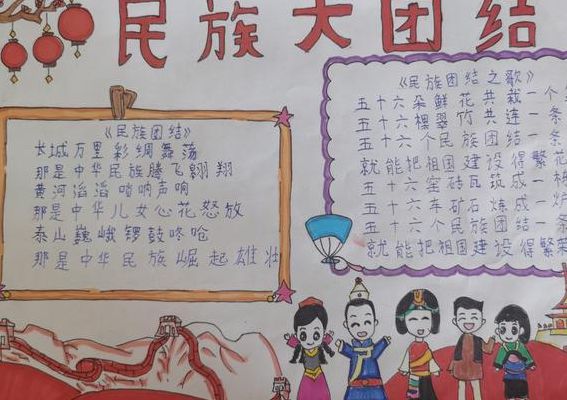 民族大团结
《民族团结》
长城万里彩绸舞荡
那是中华民族腾飞翱翔
黄河滔滔唢呐声响
那是中华儿女心花怒放
泰山巍峨锣鼓咚呛
那是中华民族崛起雄壮
《民族团结之歌》
五十六朵鲜花共栽一个
五十六棵翠竹共连一条
五十六个民族团结一条
就能把祖国建设得繁花
五十六垒砖瓦筑成一栋
五十六车矿石炼成一炉
五十六个民族团结一条
就能把祖国建设得繁荣